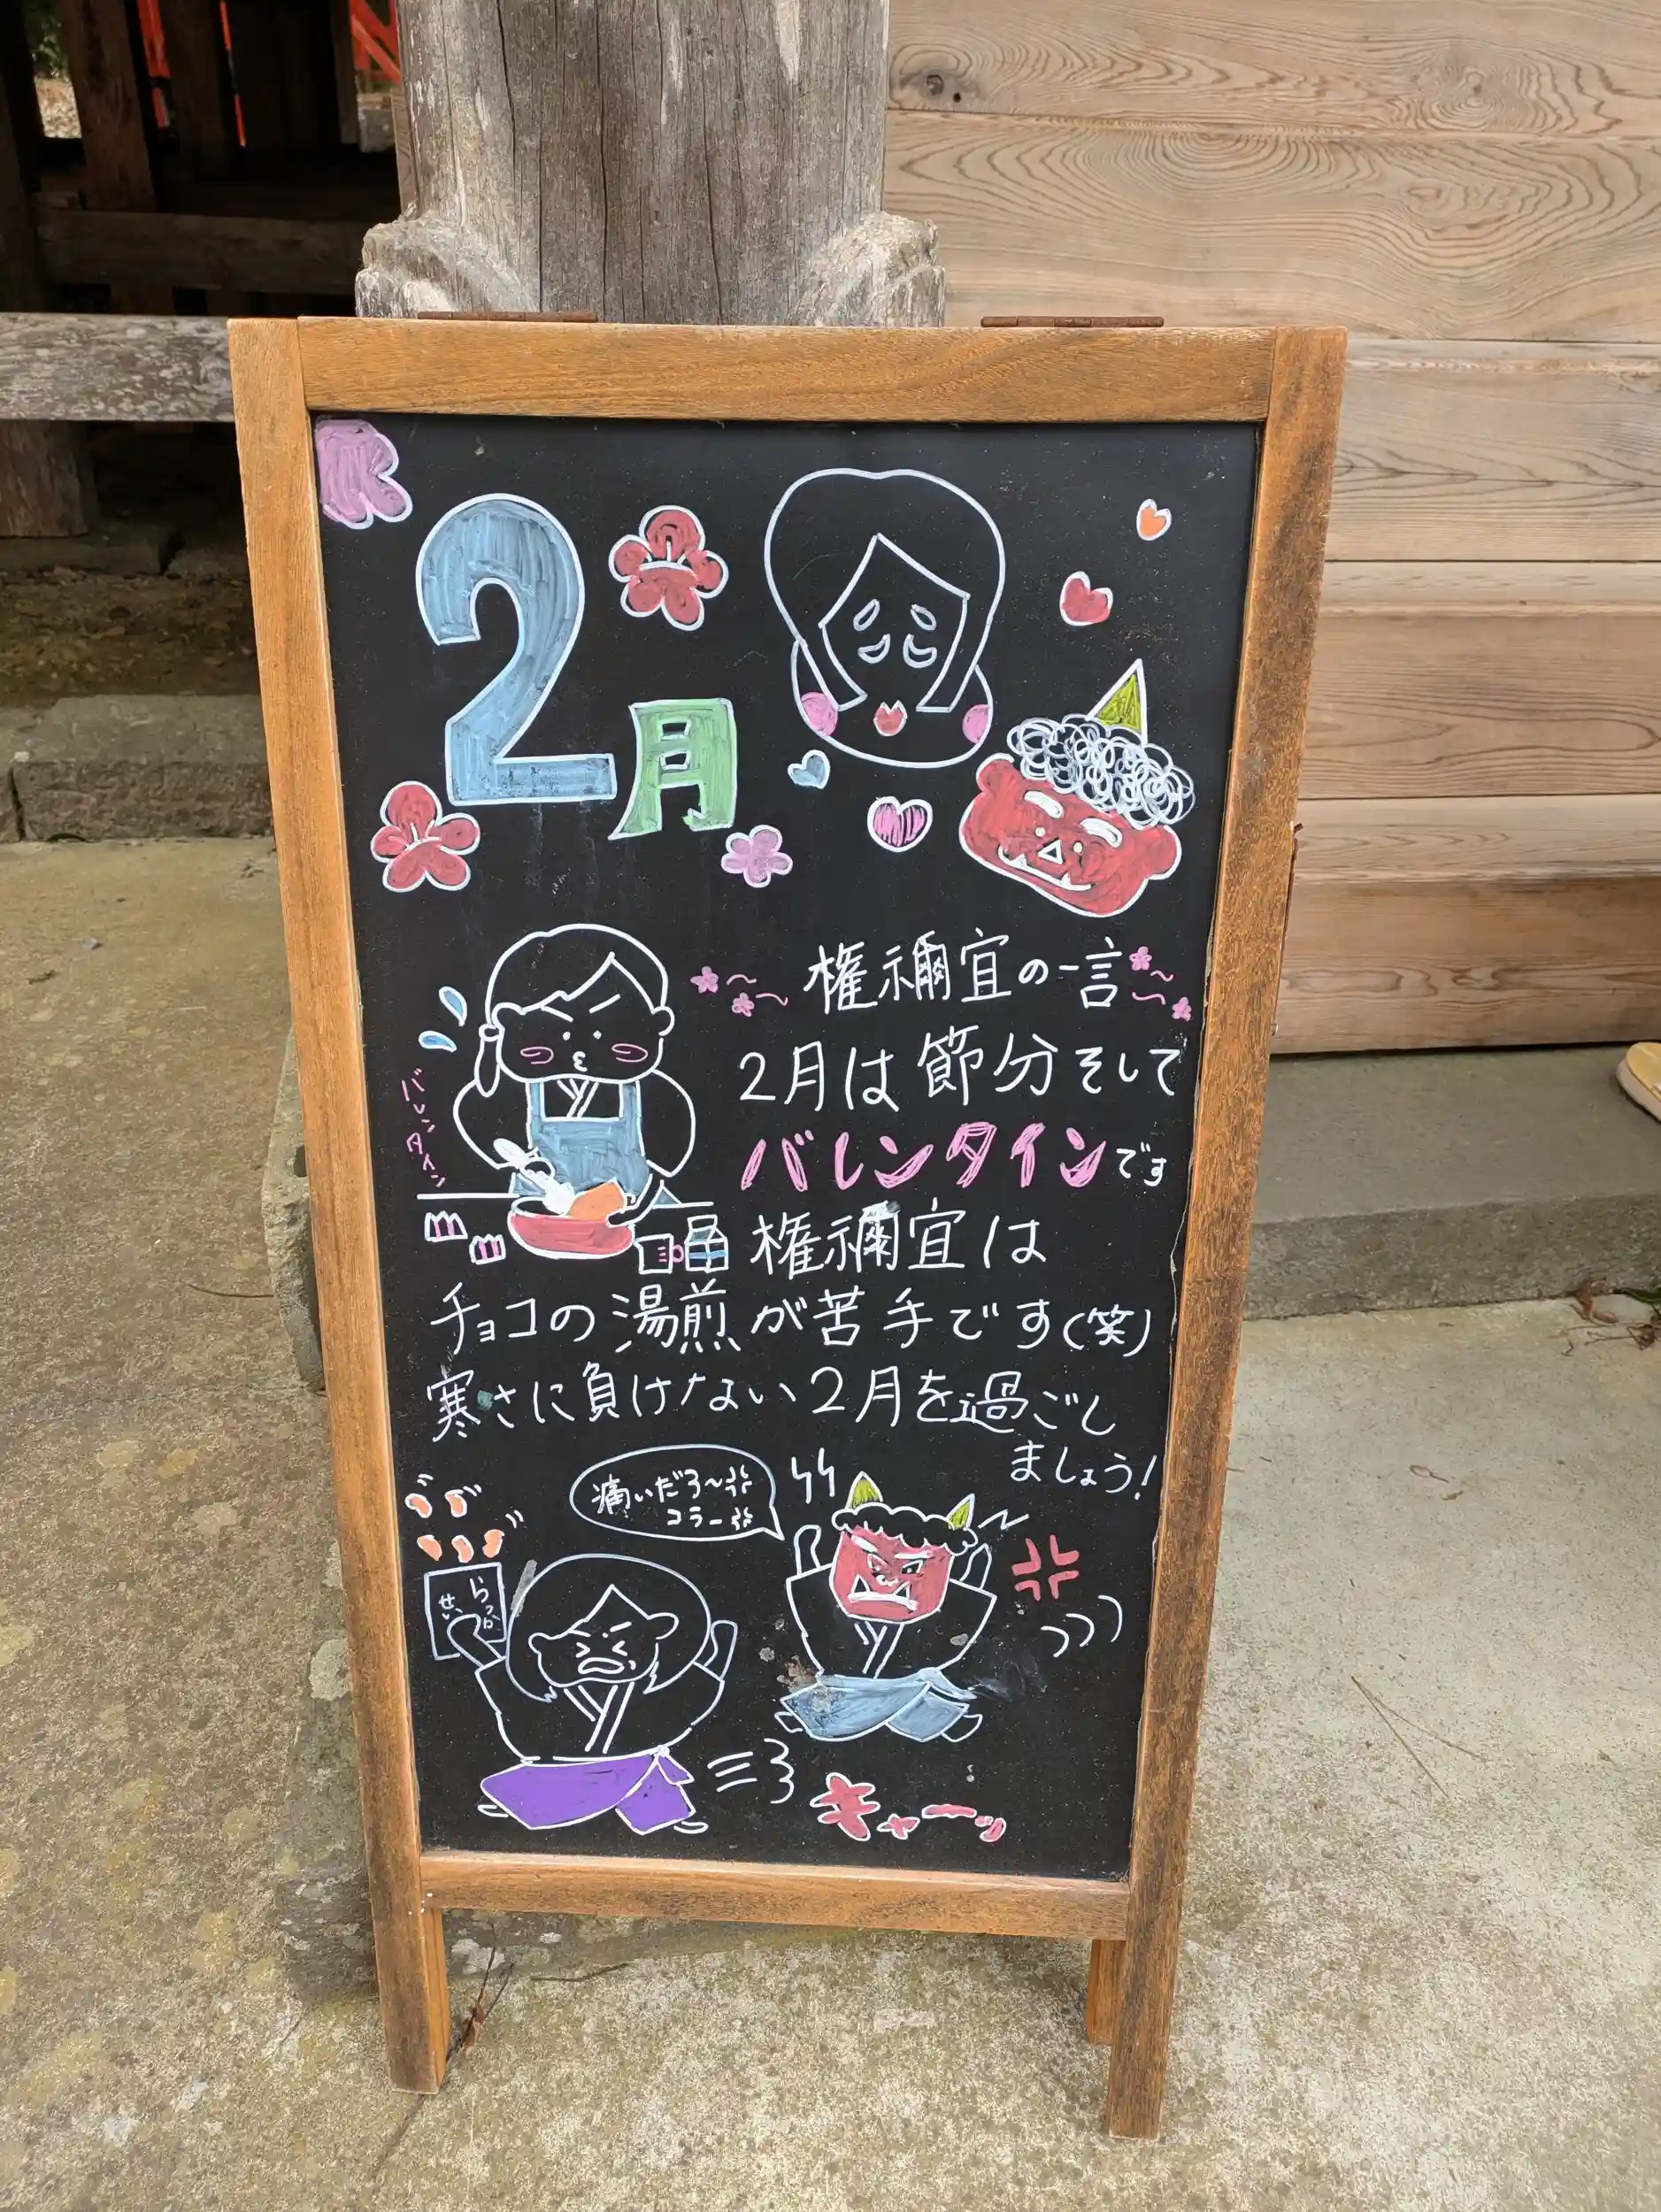 2月
権禰宜の一言
2月は節分そして
バレンタインです
バレンタイン
権禰宜は
チョコの湯煎が苦手です(笑)
寒さに負けない2月を過ごし
ましょう!
痛いだろ〜
コラー
らっか
せい
キャーッ